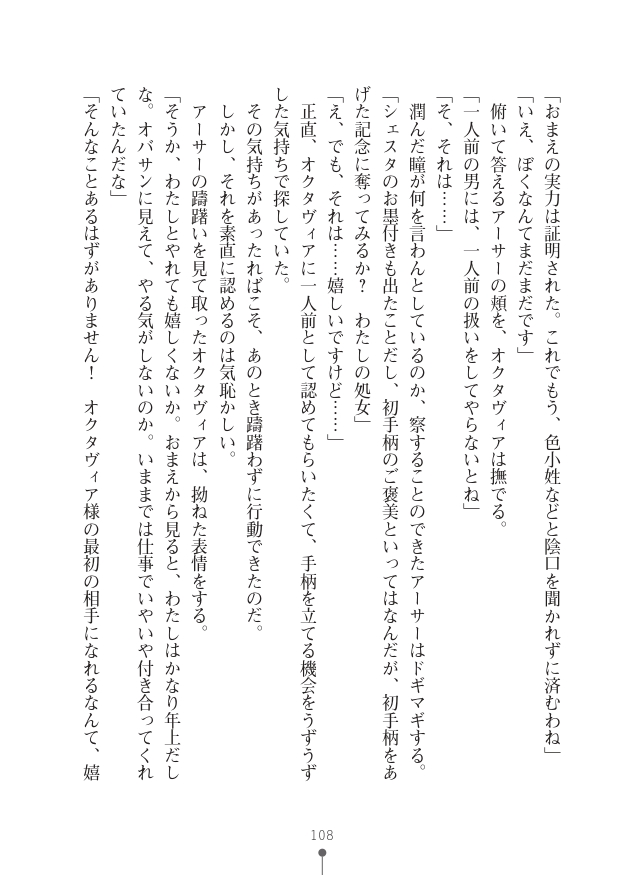 「おまえの実力は証明された。これでもう、色小姓などと陰口を聞かれずに済むわね」
「いえ、ぼくなんてまだまだです」
俯いて答えるアーサーの頬を、オクタヴィアは撫でる。
「一人前の男には、一人前の扱いをしてやらないとね」
「そ、それは……」
潤んだ瞳が何を言わんとしているのか、察することのできたアーサーはドギマギする。
「シェスタのお墨付きも出たことだし、初手柄のご褒美といってはなんだが、初手柄をあ
げた記念に奪ってみるか？　わたしの処女」
「え、でも、それは……嬉しいですけど……」
正直、オクタヴィアに一人前として認めてもらいたくて、手柄を立てる機会をうずうず
した気持ちで探していた。
その気持ちがあったればこそ、あのとき躊躇わずに行動できたのだ。
しかし、それを素直に認めるのは気恥かしい。
アーサーの躊躇いを見て取ったオクタヴィアは、拗ねた表情をする。
「そうか、わたしとやれても嬉しくないか。おまえから見ると、わたしはかなり年上だし
な。オバサンに見えて、やる気がしないのか。いままでは仕事でいやいや付き合ってくれ
ていたんだな」
「そんなことあるはずがありません！　オクタヴィア様の最初の相手になれるなんて、嬉
108